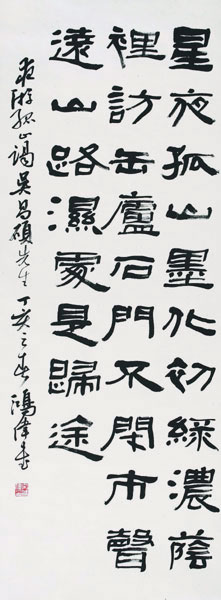 星夜孤山墨化初綠濃蔭
裡訪缶廬石門不閑市聲
遠山路濕處是歸途
夜游孤山謁吴昌碩先生丁亥之春鴻偉書